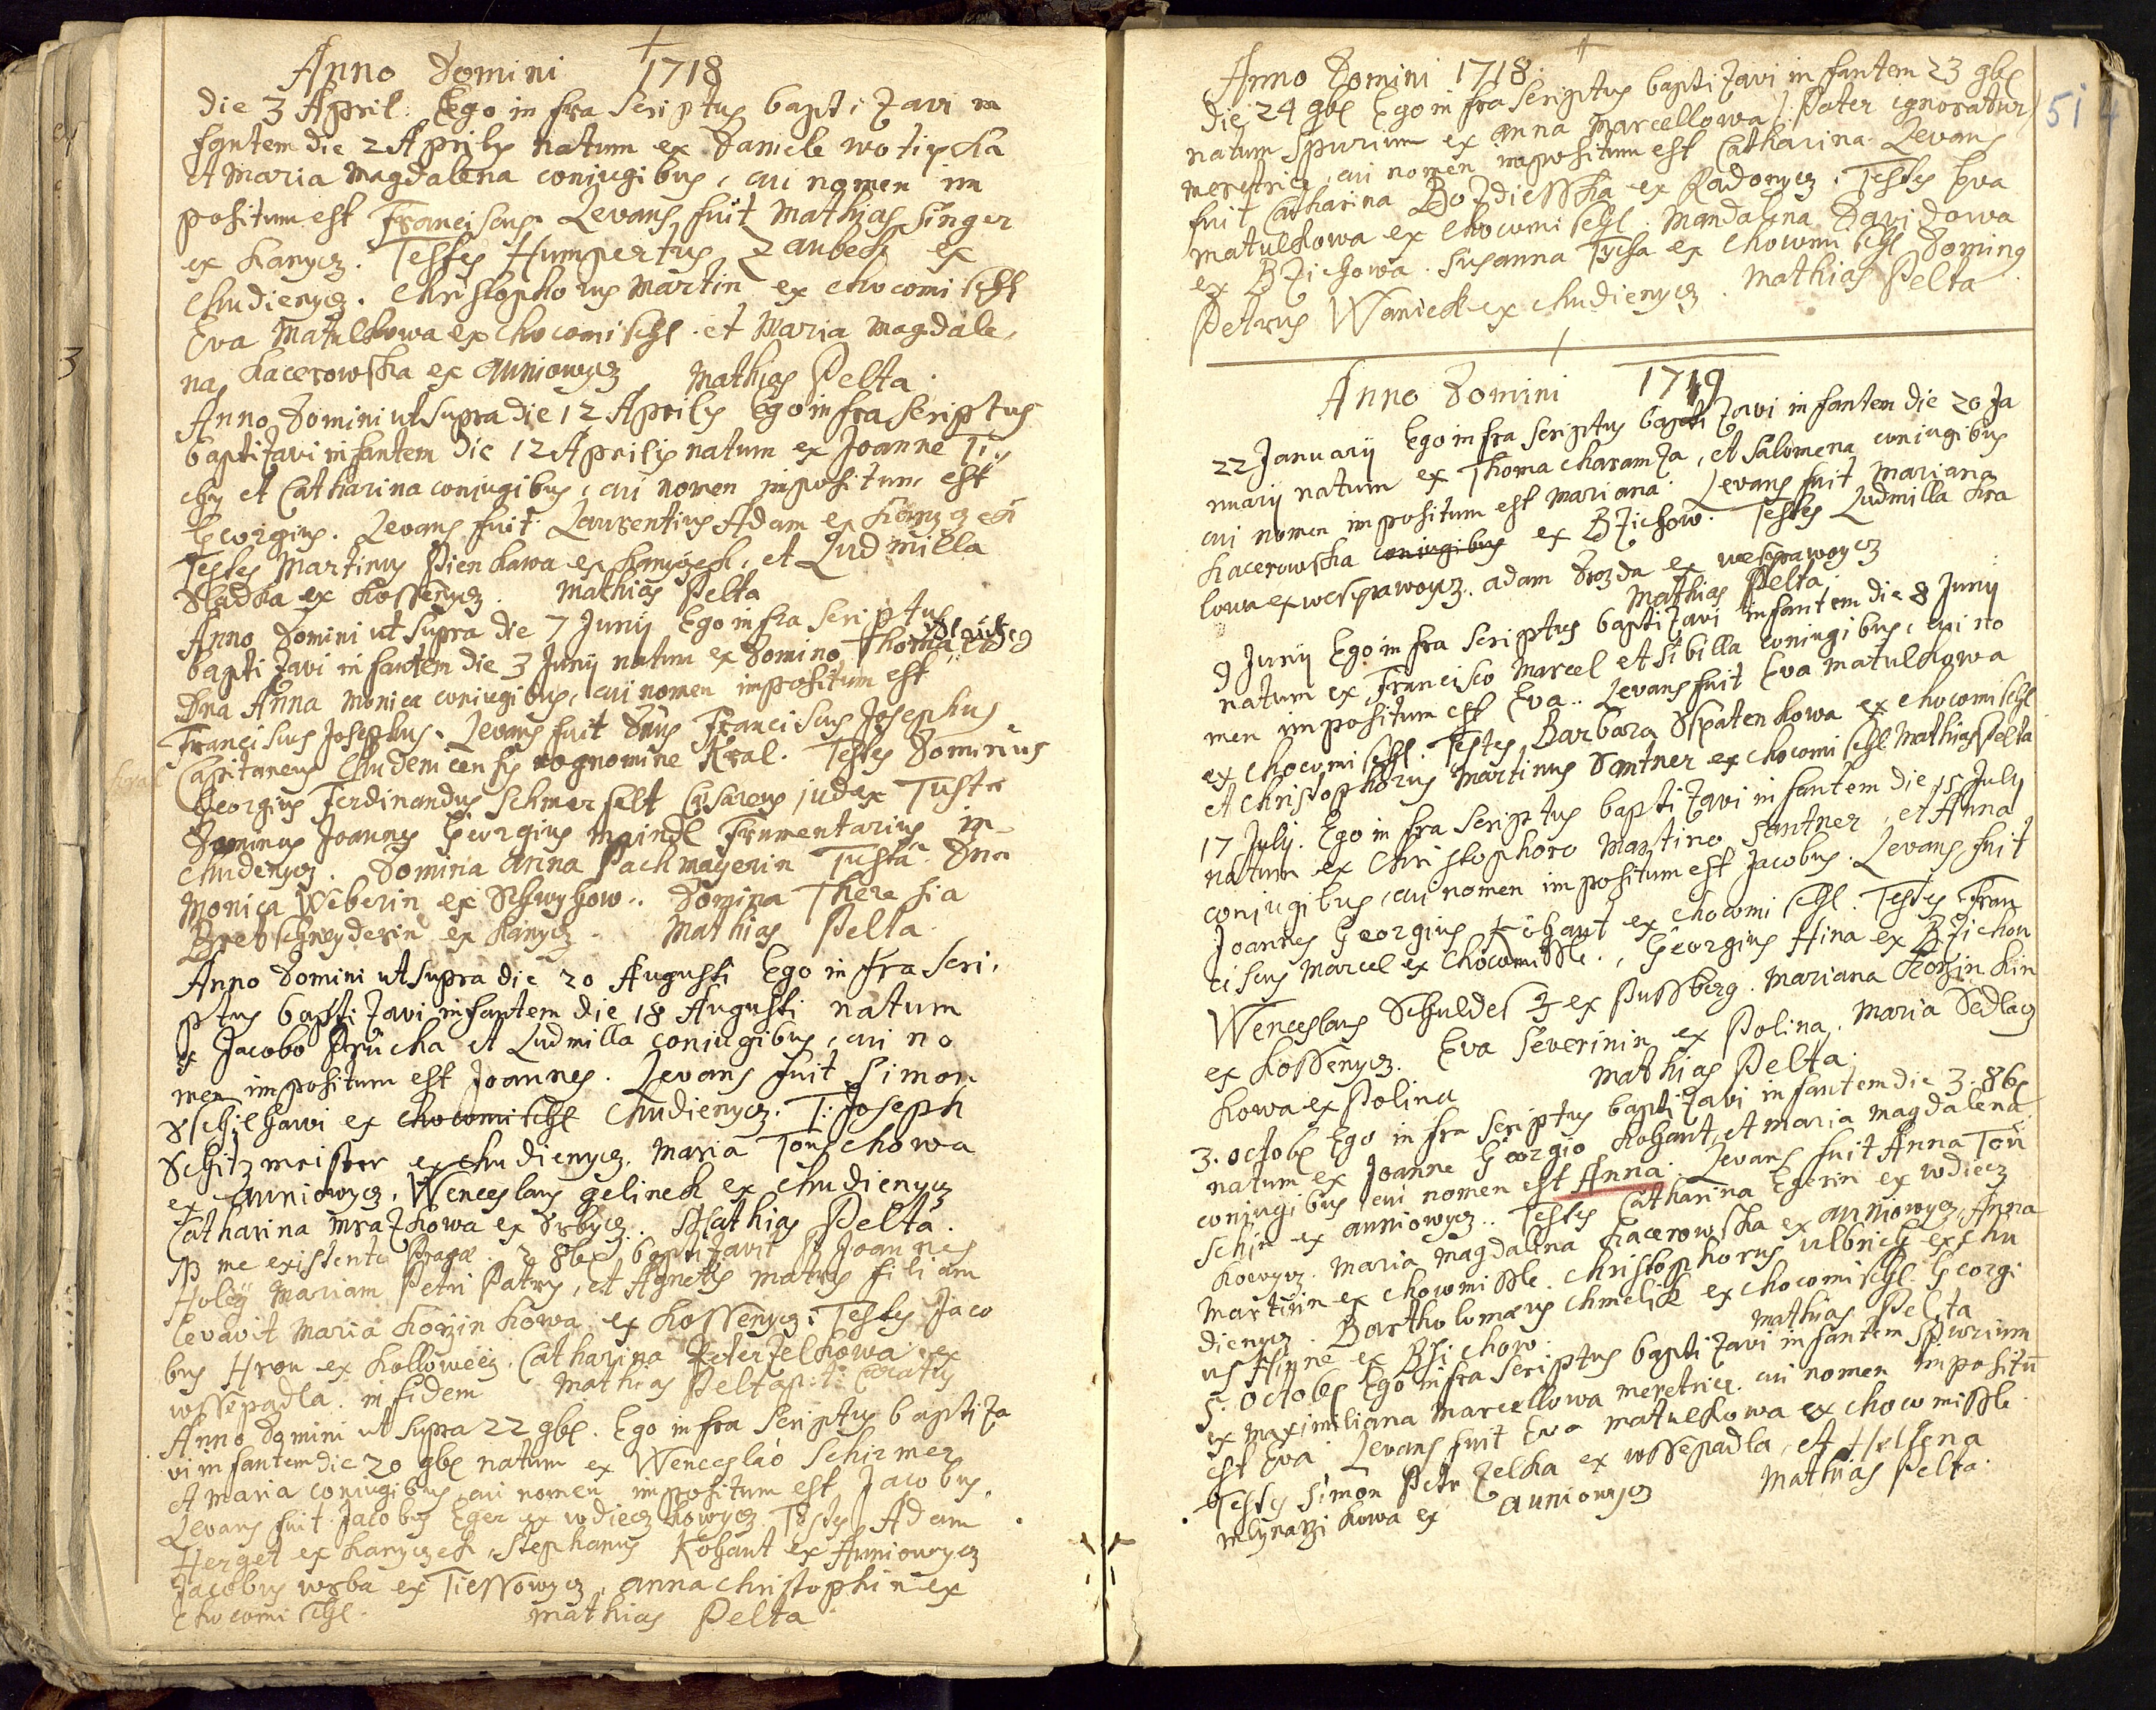 Anno Domini 1718
die 3 April: Ego infra scriptus baptizavi in
fantem die 2 Aprilis natum ex Daniele wotipka
et Maria Magdalena coniugibus, cui nomen im
positum est Franciscus. Levans fuit Mathias Singer
ex Kanycz. Testes Humpertus Zaubek ex
Chudienycz. Christophorus Martin ex Chocomischl
Eva Matulkowa ex Chocomischl et Maria Magdale,
na Kacerowska ex Auniowycz Mathias Pelta.
Anno Domini ut supra die 12 Aprilis Ego infra scriptus
baptizavi infantem die 12 Aprilis natum ex Joanne Ti,
chy et Catharina coniugibus, cui nomen impositum est
Georgius. Levans fuit Laurentius Adam ex
Testes Martinus Pienkawa ex Kanyczek, et Ludmilla
Sladka ex Kossenycz. Mathias Pelta
Anno Domini ut supra die 7 Junij Ego infra scriptus
baptizavi infantem die 3 Junij natum ex Domino Thoma
Dna Anna Monica coniugibus, cui nomen impositum est
Franciscus Josephus. Levans fuit Dnus Franciscus Josephus
Capitaneus Chudenicensis cognomine Kral. Testes Dominus
Georgius Ferdinandus Schmerfelt Caesareus judex Tustae
Dominus Joannes Georgius Maindl Frumentarius in
Chudenycz. Domina Anna Pachmayerin Tusta. Dna
Monica Weberin ex Schwyhow.. Domina Theresia
Bretschneyderin ex Kanycz. Mathias Pelta.
Anno Domini ut supra die 20 Augusti Ego infra scri,
ptus baptizavi infantem die 18 Augusti natum
ex Jacobo Prucha et Ludmilla coniugibus, cui no
men impositum est Joannes. Levans fuit Simon
ex Chocomischl Chudienycz. T: Joseph
Schitzmeister ex Chudienycz. Maria Tonschowa
ex Auniowycz. Wenceslaus Gelinek ex Chudienycz
Catharina Mrazkowa ex Srbycz.. Mathias Pelta.
me existente Pragae. 2 8bris baptizavit P Joannes
Holeÿ Mariam Petri Patris, et Agnetis Matris filiam
levavit Maria Korzinkowa ex Kossenycz. Testes Jaco
bus Hron ex Kolloweez. Catharina Peterzelkowa ex
wssepadla. in fidem Mathias Pelta p:t: Curatus
Anno Domini ut supra 22 9bris. Ego infra scriptus baptiza
vi infantem die 20 9bris natum ex Wenceslao Schirmer
et Maria coniugibus cui nomen impositum est Jacobus.
Levans fuit Jacobus Eger ex wdieczkowycz. Testes Adam
Herget ex Kanyczek, Stephanus Kohaut ex Auniowycz
Jacobus wrba ex Tiessowycz, Anna Christophin ex
Chocomischl. Mathias Pelta
Anno Domini 1718.
51
die 24 9bris Ego infra scriptus baptizavi infantem 23 9bris
natum Spurium ex Anna Marcellowa (: Pater ignoratur)
meretrice, cui nomen impositum est Catharina. Levans
fuit Catharina Bozdiesska ex Radonycz. Testes Eva
Matulkowa ex Chocomischl. Mandalena Davidowa
ex Bzichowa. Susanna Tycha ex Chocomischl Dominus
Petrus Waniek ex Chudienycz. Mathias Pelta
Anno Domini 1719
22 Januarij Ego infra scriptus baptizavi infantem die 20 Ja
nuarij natum ex Thoma Charamza, et Salomena coniugibus
cui nomen impositum est Mariana. Levans fuit Mariana
Kacerowska coniugibus ex Bzichow. Testes Ludmilla Kra
lowa ex wesprawowycz. Adam Drozda ex wesprawowycz
Mathias Pelta.
9 Junij Ego infra scriptus baptizavi infantem die 8 Junij
natum ex Francisco Marcel et Sibilla coniugibus, cui no
men impositum est Eva.. Levans fuit Eva Matulkowa
ex Chocomischl. Testes Barbara Spatenkowa ex Chocomischl
et Christophorus Martinus Santner ex Chocomischl Mathias Pelta
17 July. Ego infra scriptus baptizavi infantem die 15 July
natum ex Christophoro Martino Santner, et Anna
conjugibus, cui nomen impositum est Jacobus. Levans fuit
Joannes Georgius Kohaut ex Chocomischl. Testes Fran
ciscus Marcel ex Chocomissle., Georgius Hina ex Bzichow
Wenceslaus Schuldes ex Pussberg. Mariana Korzinkin
ex Kossenycz. Eva Severinin ex Polina. Maria Sedlacz
kowa ex Polina Mathias Pelta.
3. Octobris Ego infra scriptus baptizavi infantem die 3. 8bris
natum ex Joanne Georgio Kohaut, et Maria Magdalena
coniugibus cui nomen est Anna. Levans fuit Anna Ton
schin ex Auniowycz.. Testes Catharina Egerin ex wdiecz
kowycz. Maria Magdalena Kacerowska ex Auniowycz, Anna
Martinin ex Chocomissle. Christophorus Ulbrich ex Chu
dienycz. Bartholomaeus Chmelik ex Chocomischl. Georgi
us Hinne ex Bzichow. Mathias Pelta
5. Octobris Ego infra scriptus baptizavi infantem Spurium
ex Maximiliana Marcellowa meretrice. cui nomen impositum
est Eva. Levans fuit Eva Matulkowa ex Chocomissle.
Testes Simon Petrzelka ex wssepadla, et Helena
Mlynarzikowa ex Auniowycz Mathias Pelta.